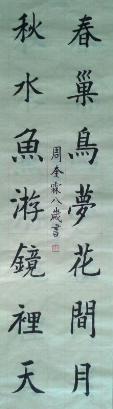 春巢鳥夢花間月
秋水魚游鏡裡天
周奎霖八歲書